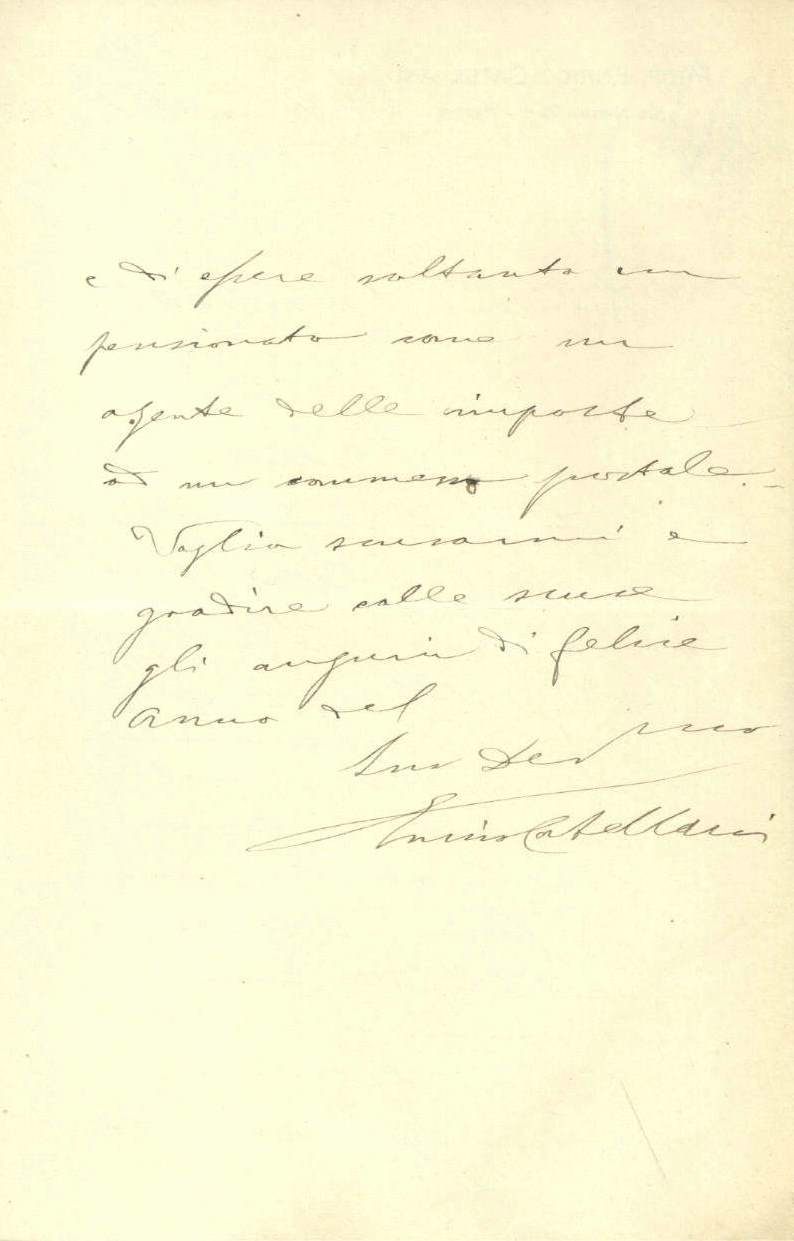 e di essere soltanto un
pensionato come un
agente delle imposte
od un commesso postale.
Voglia scusarmi e
gradire colle scuse
gli augurii di felice
anno del
Suo Dev.mo
Enrico Catellani